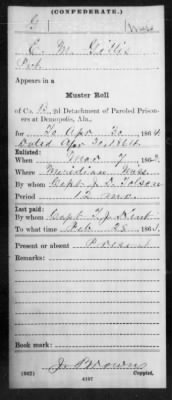 (CONFEDERATE.)
G Miss
E. M. Gillis
Appears in a
Muster Roll
of Co. B, 2d Detachment of Paroled Prison-
ers at Demopolis, Ala.,
for To Apr 30, 1864.
Dated Apr 30, 1864.
Enlisted:
When Mar 7, 1862.
Where Meridian Miss.
By whom Capt. J. L. Tolson
Period 12 mos.
Last paid:
By whom Capt. T. J.
To what time Feb 28, 1863.
Present or absent Present
Remarks:
Book mark:
J. Brown
(662) 4107 Copyist.